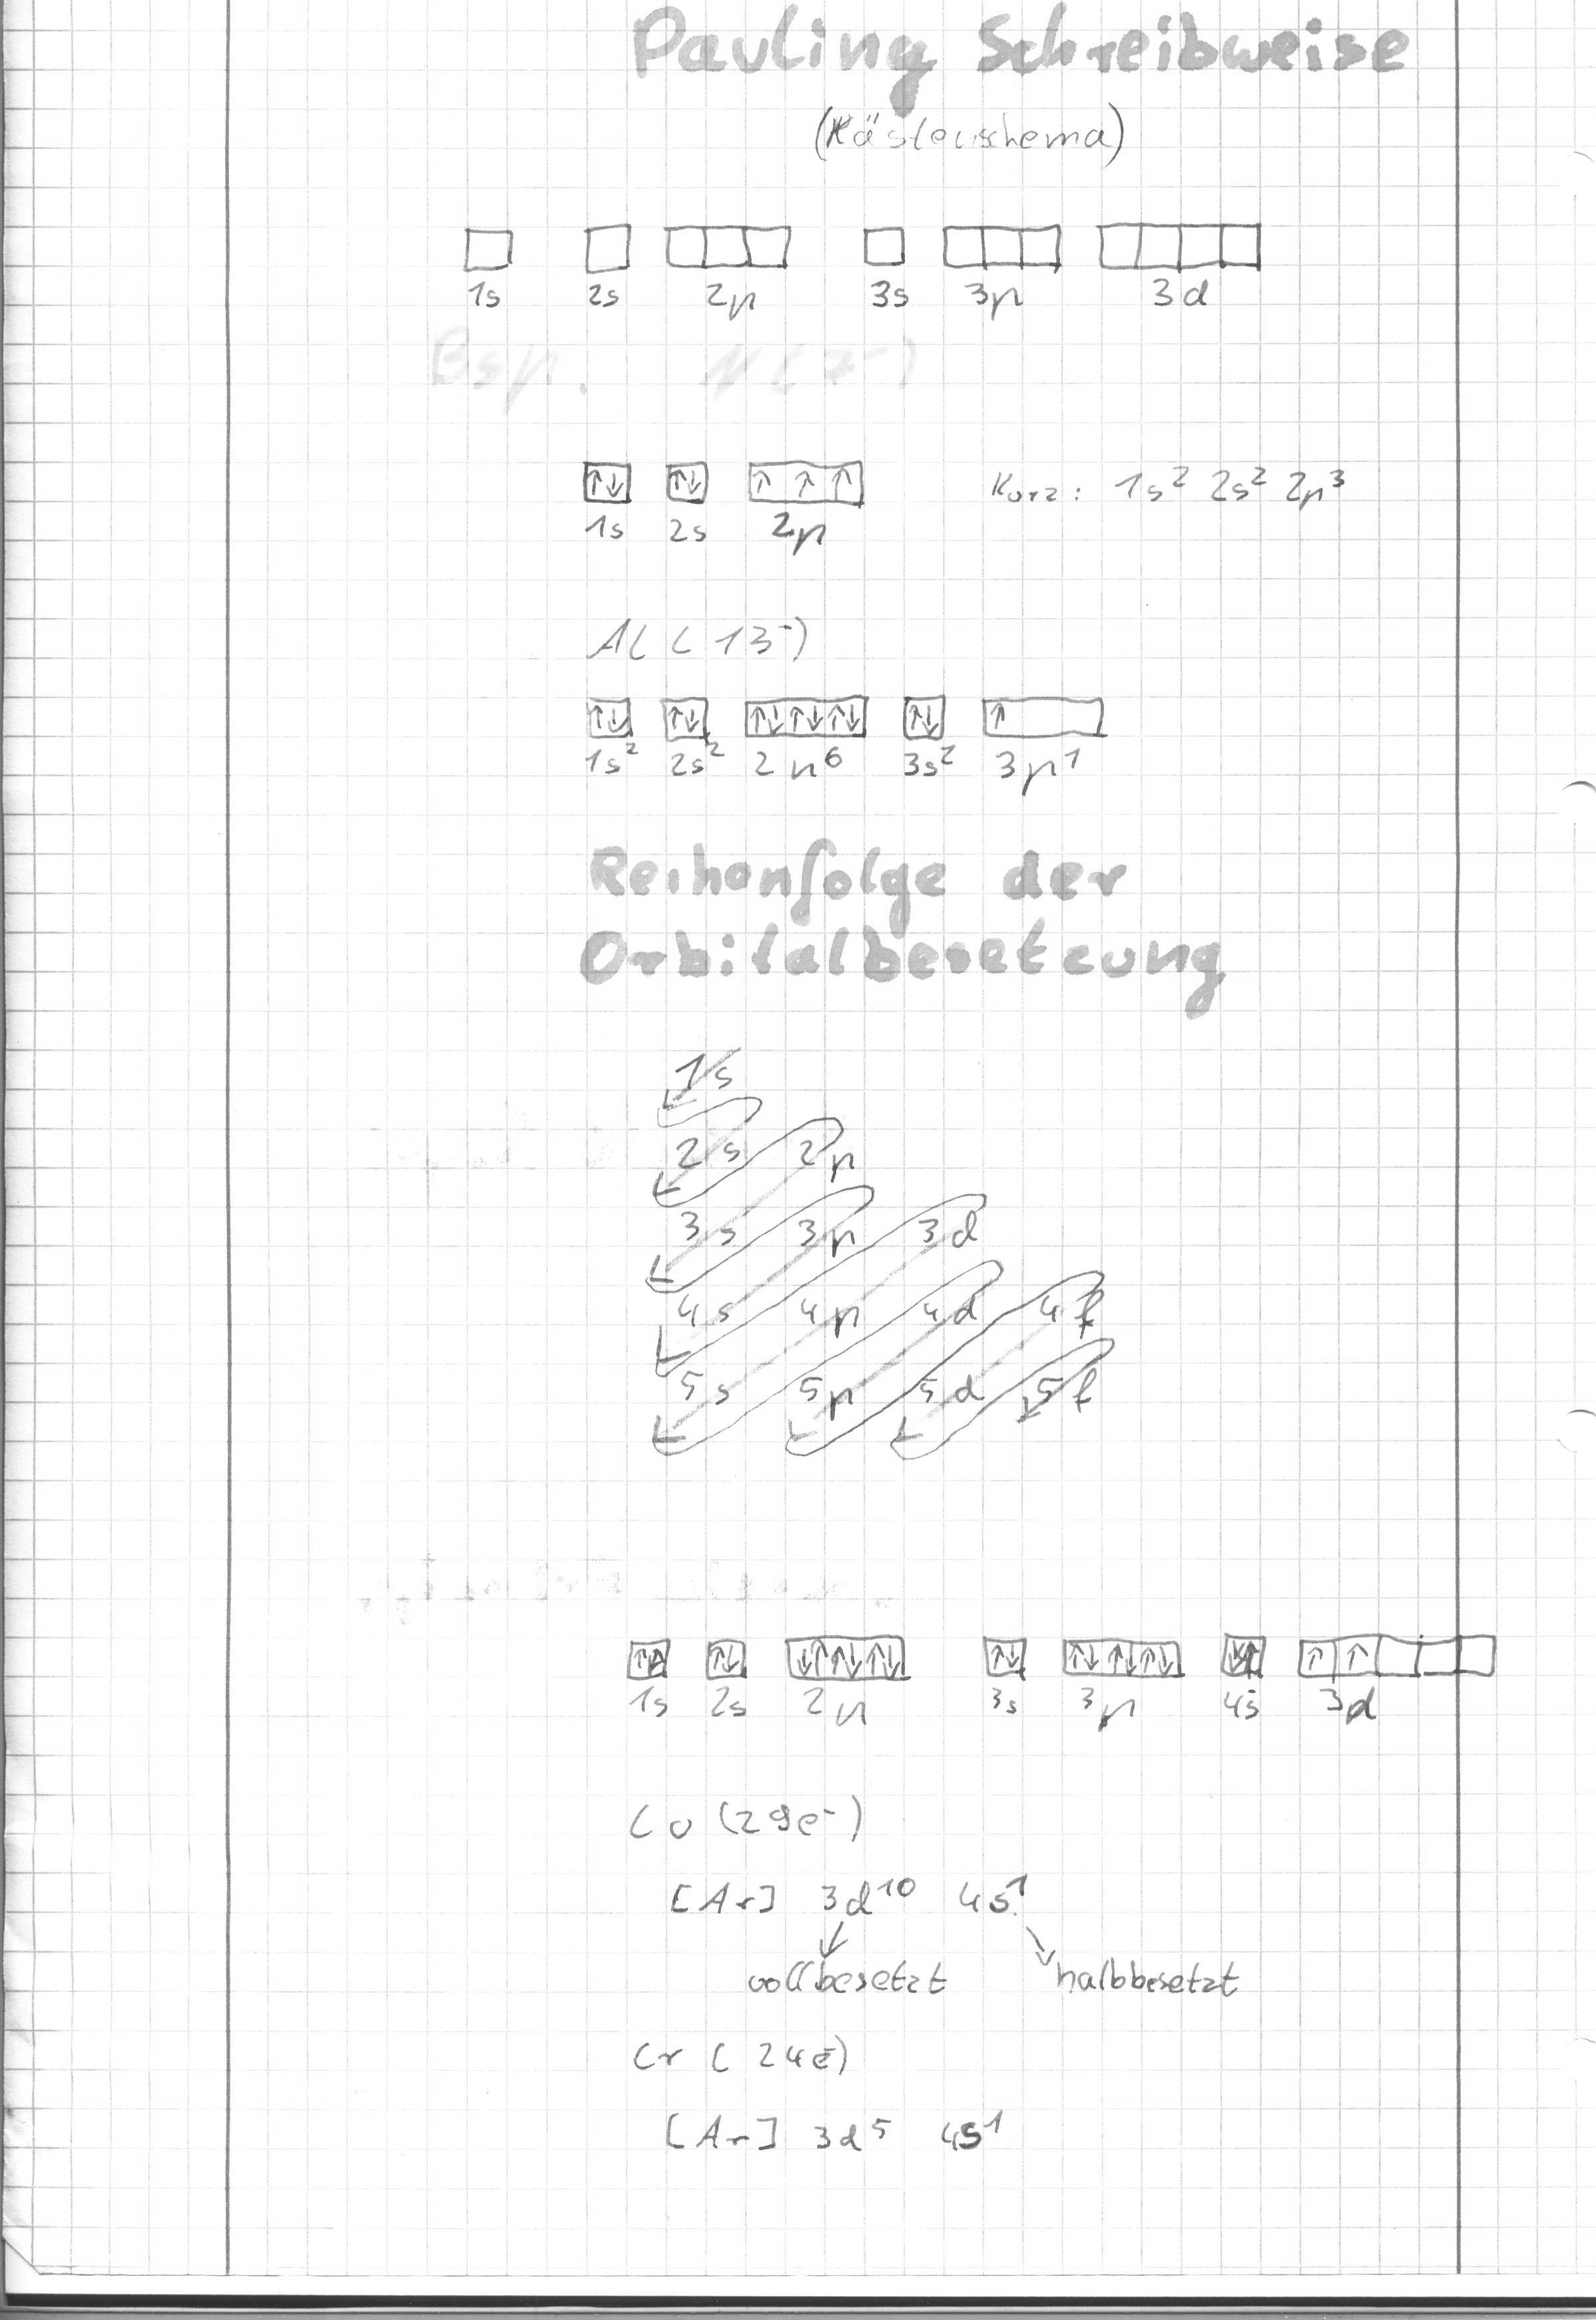 Pauling Schreibweise
(Kästenschema)
1s 2s 2p 3s 3p 3d
Bsp. N (7-)
↑↓ ↑↓ ↑ ↑ ↑ Kurz: 1s² 2s² 2p³
1s 2s 2p
Al (13-)
↑↓ ↑↓ ↑↓↑↓↑↓ ↑↓ ↑
1s² 2s² 2p⁶ 3s² 3p¹
Reihenfolge der
Orbitalbesetzung
1s
2s 2p
3s 3p 3d
4s 4p 4d 4f
5s 5p 5d 5f
1s 2s 2p 3s 3p 4s 3d
Cu (29e-)
[Ar] 3d¹⁰ 4s¹
vollbesetzt halbbesetzt
Cr (24e-)
[Ar] 3d⁵ 4s¹